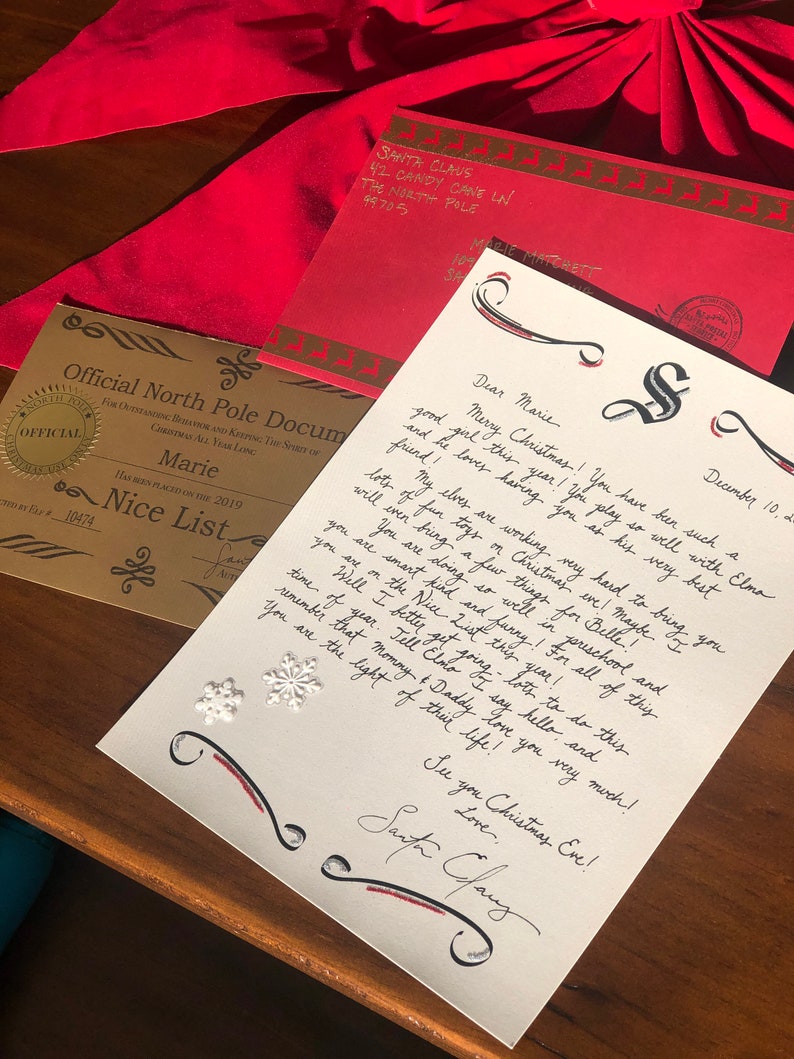 SANTA CLAUS
42 CANDY CANE LN
THE NORTH POLE
99705
MARIE MATCHETT
109
SA
MERRY CHRISTMAS
SANTA POSTAL
Official North Pole Docum
FOR OUTSTANDING BEHAVIOR AND KEEPING THE SPIRIT OF
CHRISTMAS ALL YEAR LONG
Marie
HAS BEEN PLACED ON THE 2019
Nice List
CTED BY ELF # 10474
Sant
AUT
NORTH POLE
OFFICIAL
CHRISTMAS USE ONLY
S
December 10, 20
Dear Marie
Merry Christmas! You have been such a
good girl this year! You play so well with Elmo
and he loves having you as his very best
friend!
My elves are working very hard to bring you
lots of fun toys on Christmas eve! Maybe I
will even bring a few things for Belle!
You are doing so well in preschool and
you are smart kind and funny! For all of this
you are on the Nice List this year!
Well I better get going - lots to do this
time of year. Tell Elmo I say hello, and
remember that Mommy & Daddy love you very much!
You are the light of their life!
See you Christmas Eve!
Love,
Santa Claus